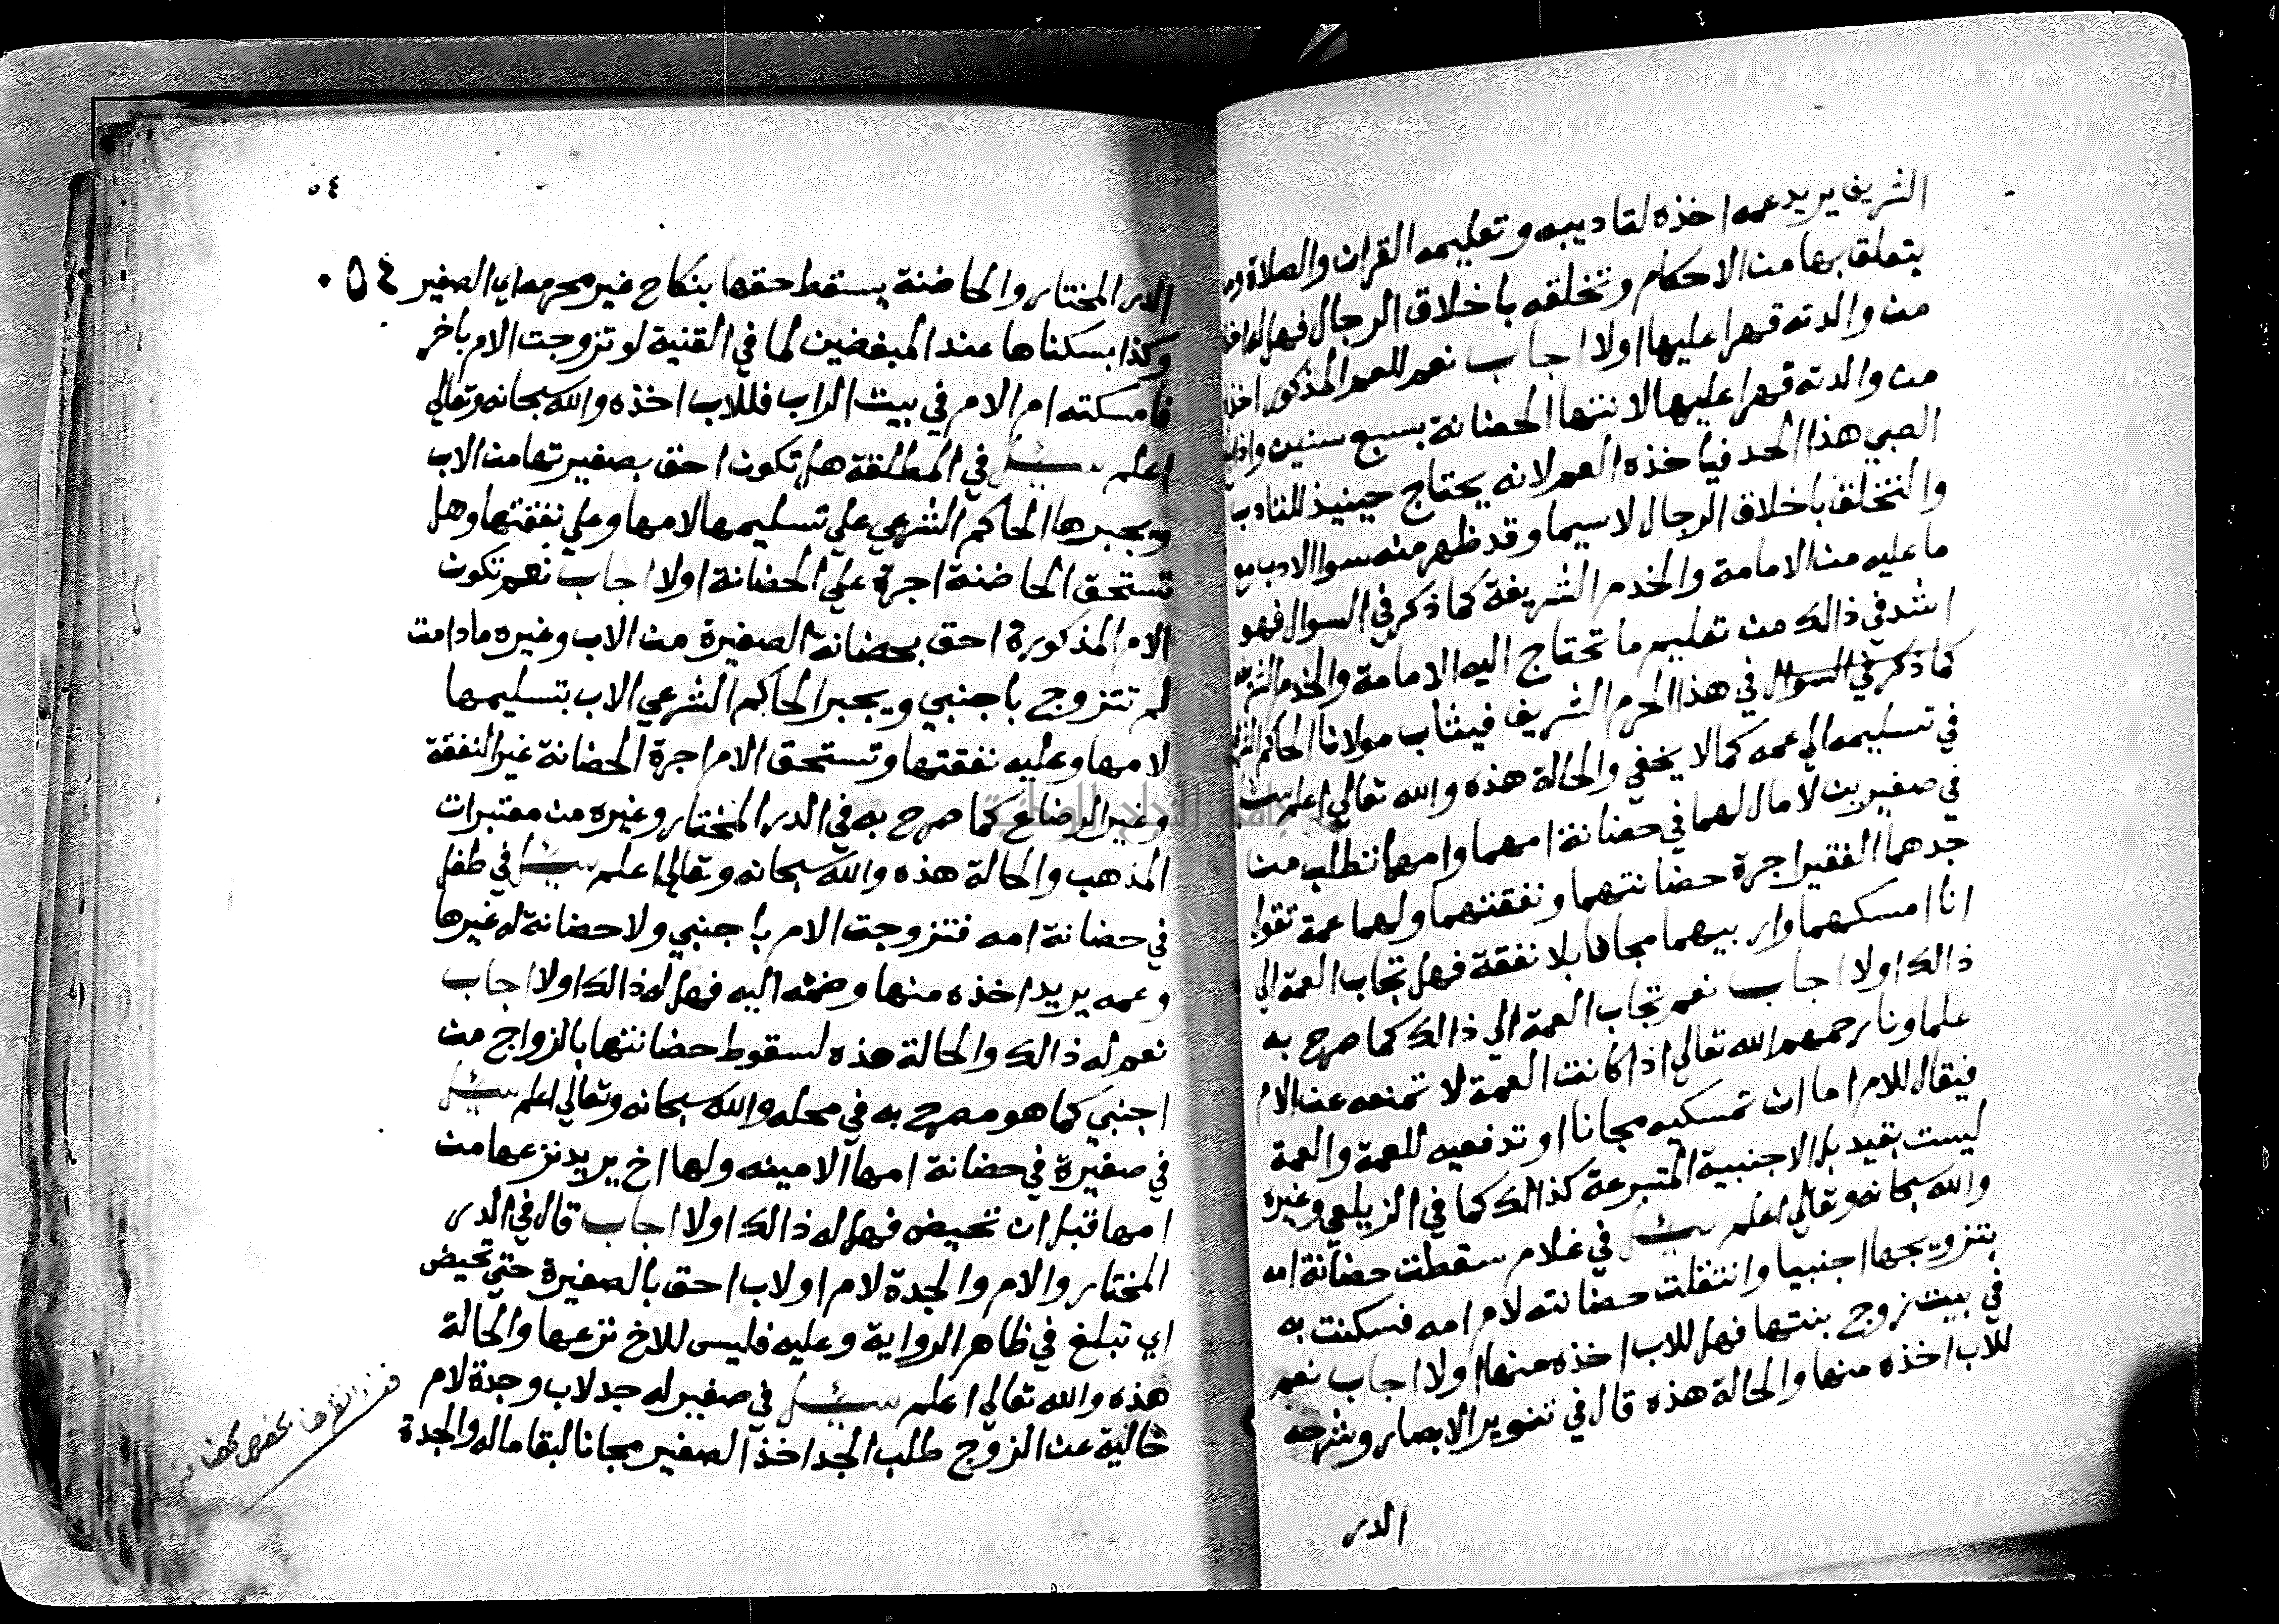 الشريف يريد عمه اخذه لتاديبه وتعليمه القران والصلاة وما
يتعلق بها من الاحكام وتخلقه باخلاق الرجال فهل له اخذه
من والدته قهرا عليها اولا اجاب نعم للعم المذكور اخذه
من والدته قهرا عليها لانتها الحضانة بسبع سنين واذا بلغ
الصبي هذا الحد فياخذه العم لانه يحتاج حينيذ للتاديب
والتخلق باخلاق الرجال لاسيما وقد ظهر منه سوا الادب مع
ما عليه من الامامة والخدم الشريفة كما ذكر في السوال فهو
اشد في ذالك من تعليم ما تحتاج اليه الامامة والخدم الشريفة
كما ذكر في السوال في هذا الحرم الشريف فيثاب مولانا الحاكم الشرعي
في تسليمه الي عمه كما لا يخفي والحالة هذه والله تعالي اعلم سئل
في صغيرين لا مال لهما في حضانة امهما وامهما تطلب من
جدهما الفقير اجرة حضانتهما ونفقتهما ولهما عمة تقول
انا امسكهما واربيهما مجانا بلا نفقة فهل تجاب العمة الي
ذالك اولا اجاب نعم تجاب العمة الي ذالك كما صرح به
علماونا رحمهم الله تعالي اذا كانت العمة لا تمنعه عن الام
فيقال للام اما ان تمسكيه مجانا او تدفعيه للعمة والعمة
ليست بقيد بل الاجنبية المتبرعة كذالك كما في الزيلعي وغيره
والله سبحانه وتعالي اعلم سئل في غلام سقطت حضانة امه
بتزويجها اجنبيا وانتقلت حضانته لام امه فسكنت به
في بيت زوج بنتها فهل للاب اخذه منها اولا اجاب نعم
للاب اخذه منها والحالة هذه قال في تنوير الابصار وشرحه
الدر
٥٤
الدر المختار والحاضنة يسقط حقها بنكاح غير محرمه اي الصغير ٥٤
وكذا بسكناها عند المبغضين لما في القنية لو تزوجت الام باخر
فامسكته ام الام في بيت الراب فللاب اخذه والله سبحانه وتعالي
اعلم سئل في المطلقة هل تكون احق بصغيرتها من الاب
ويجبرها الحاكم الشرعي علي تسليمها لامها وعلي نفقتها وهل
تستحق الحاضنة اجرة علي الحضانة اولا اجاب نعم تكون
الام المذكورة احق بحضانة الصغيرة من الاب وغيره مادامت
لم تتزوج باجنبي ويجبر الحاكم الشرعي الاب بتسليمها
لامها وعليه نفقتها وتستحق الام اجرة الحضانة غير النفقة
وغير الرضاع كما صرح به في الدر المختار وغيره من معتبرات
المذهب والحالة هذه والله سبحانه وتعالي اعلم سئل في طفل
في حضانة امه فتزوجت الام باجنبي ولا حضانة له غيرها
وعمه يريد اخذه منها وضمه اليه فهل له ذالك اولا اجاب
نعم له ذالك والحالة هذه لسقوط حضانتها بالزواج من
اجنبي كما هو مصرح به في محله والله سبحانه وتعالي اعلم سئل
في صغيرة في حضانة امها الامينه ولها اخ يريد نزعها من
امها قبل ان تحيض فهل له ذالك اولا اجاب قال في الدر
المختار والام والجدة لام اولاب احق بالصغيرة حتي تحيض
اي تبلغ في ظاهر الرواية وعليه فليس للاخ نزعها والحالة
هذه والله تعالي اعلم سئل في صغير له جد لاب وجدة لام
خالية عن الزوج طلب الجد اخذ الصغير مجانا لبقا ماله والجدة